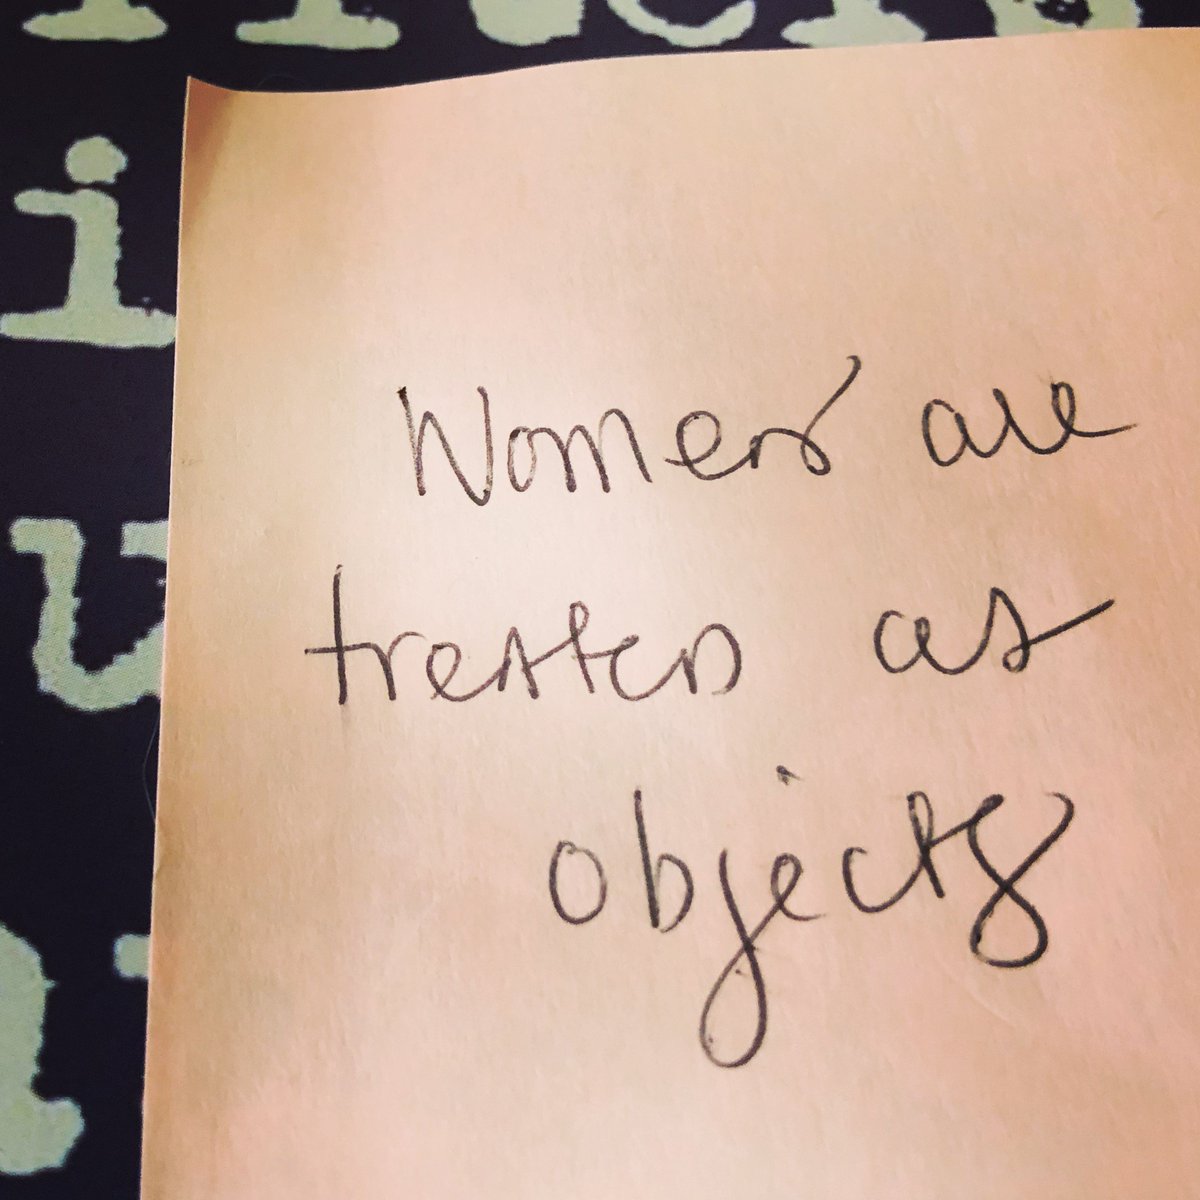 i
Women are
treated as
objects